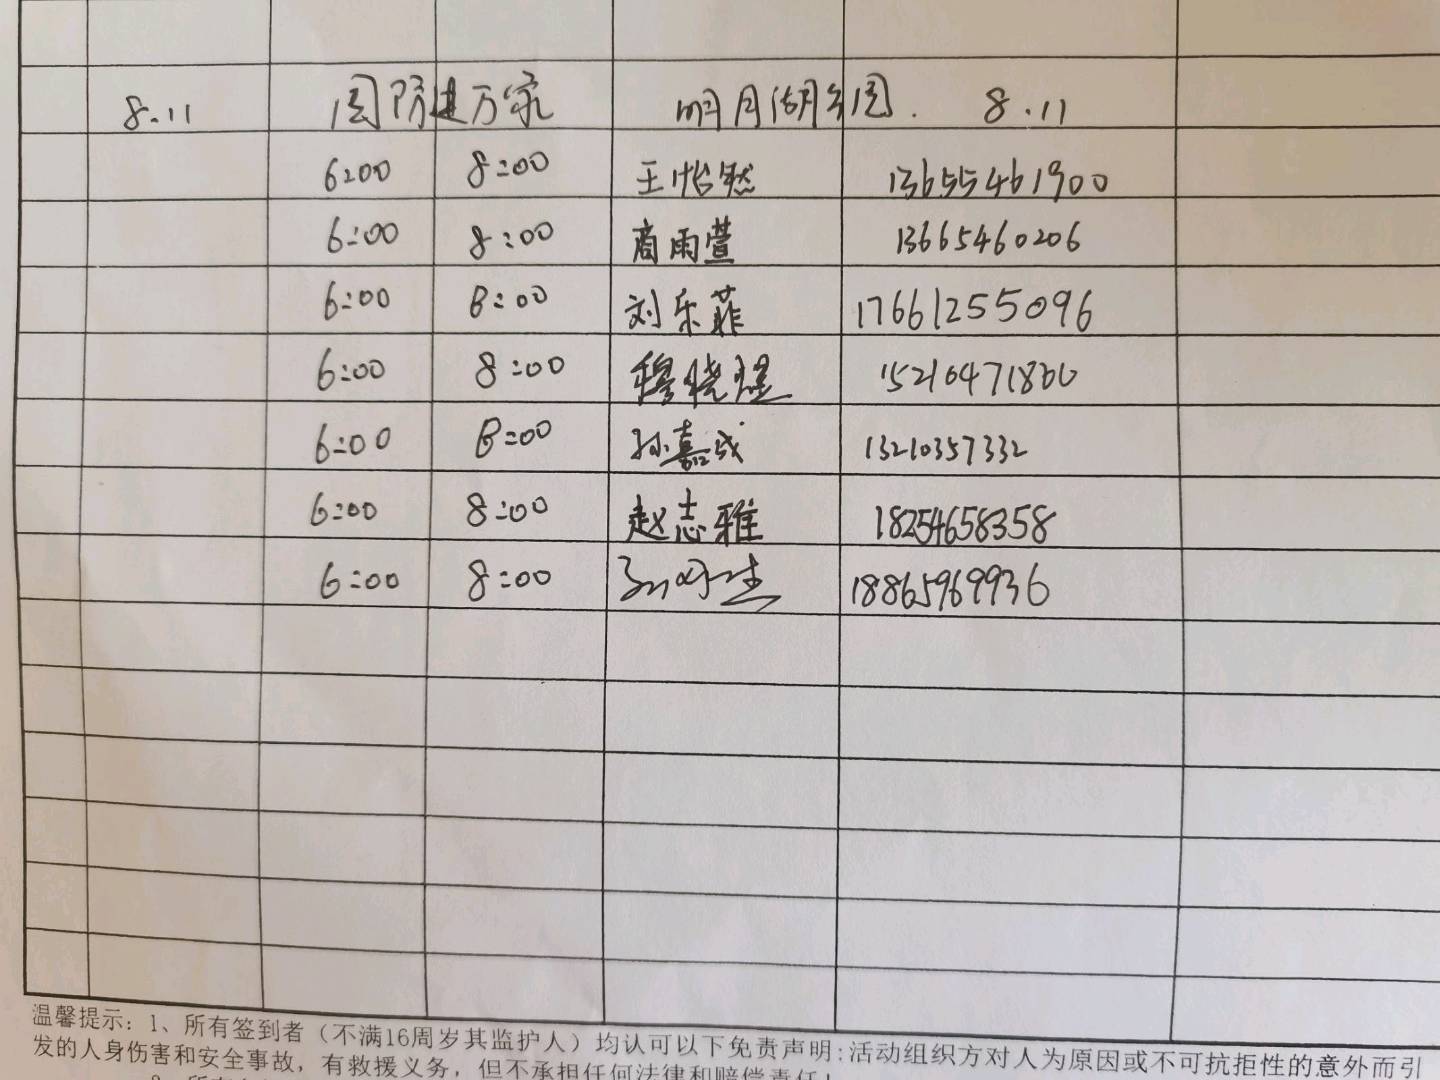 8.11 国防进万家 明月湖公园. 8.11
6:00 8:00 王怡然 13655461900
6:00 8:00 商雨萱 13665460206
6:00 8:00 刘乐菲 17661255096
6:00 8:00 穆晓煜 15210471800
6:00 8:00 孙嘉成 13210357332
6:00 8:00 赵志雅 18254658358
6:00 8:00 18865969936
温馨提示: 1、所有签到者（不满16周岁其监护人）均认可以下免责声明:活动组织方对人为原因或不可抗拒性的意外而引
发的人身伤害和安全事故，有救援义务，但不承担任何法律和赔偿责任!